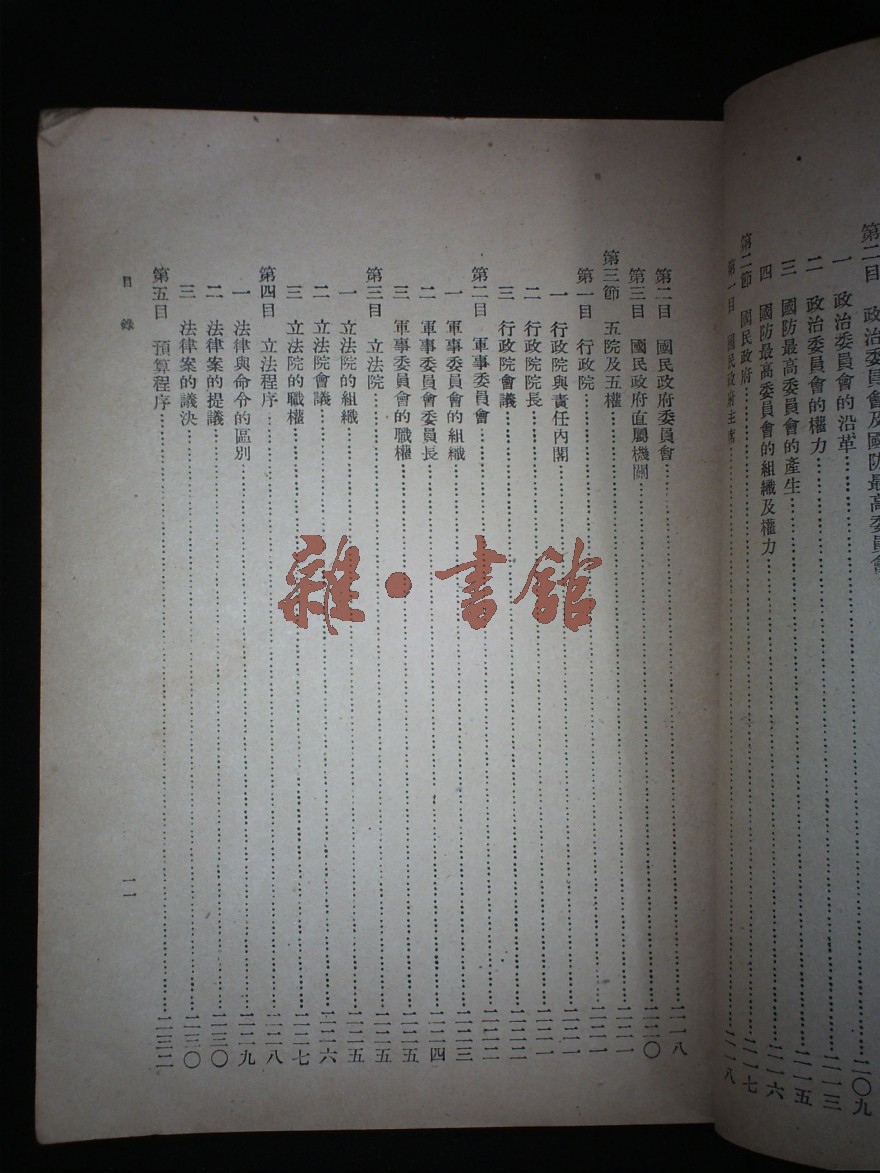 第二目 政治委員會及國防最高委員會
一 政治委員會的沿革……二〇九
二 政治委員會的權力……二一三
三 國防最高委員會的產生……二一五
四 國防最高委員會的組織及權力……二一六
第二節 國民政府……二一七
第一目 國民政府主席……二一八
第二目 國民政府委員會……二一八
第三目 國民政府直屬機關……二二〇
第三節 五院及五權……二二一
第一目 行政院……二二一
一 行政院與責任內閣……二二一
二 行政院院長……二二一
三 行政院會議……二二二
第二目 軍事委員會……二二二
一 軍事委員會的組織……二二三
二 軍事委員會委員長……二二四
三 軍事委員會的職權……二二五
第三目 立法院……二二五
一 立法院的組織……二二五
二 立法院會議……二二六
三 立法院的職權……二二七
第四目 立法程序……二二八
一 法律與命令的區別……二二九
二 法律案的提議……二三〇
三 法律案的議決……二三〇
第五目 預算程序……二三二
目錄
一一
雜·書館